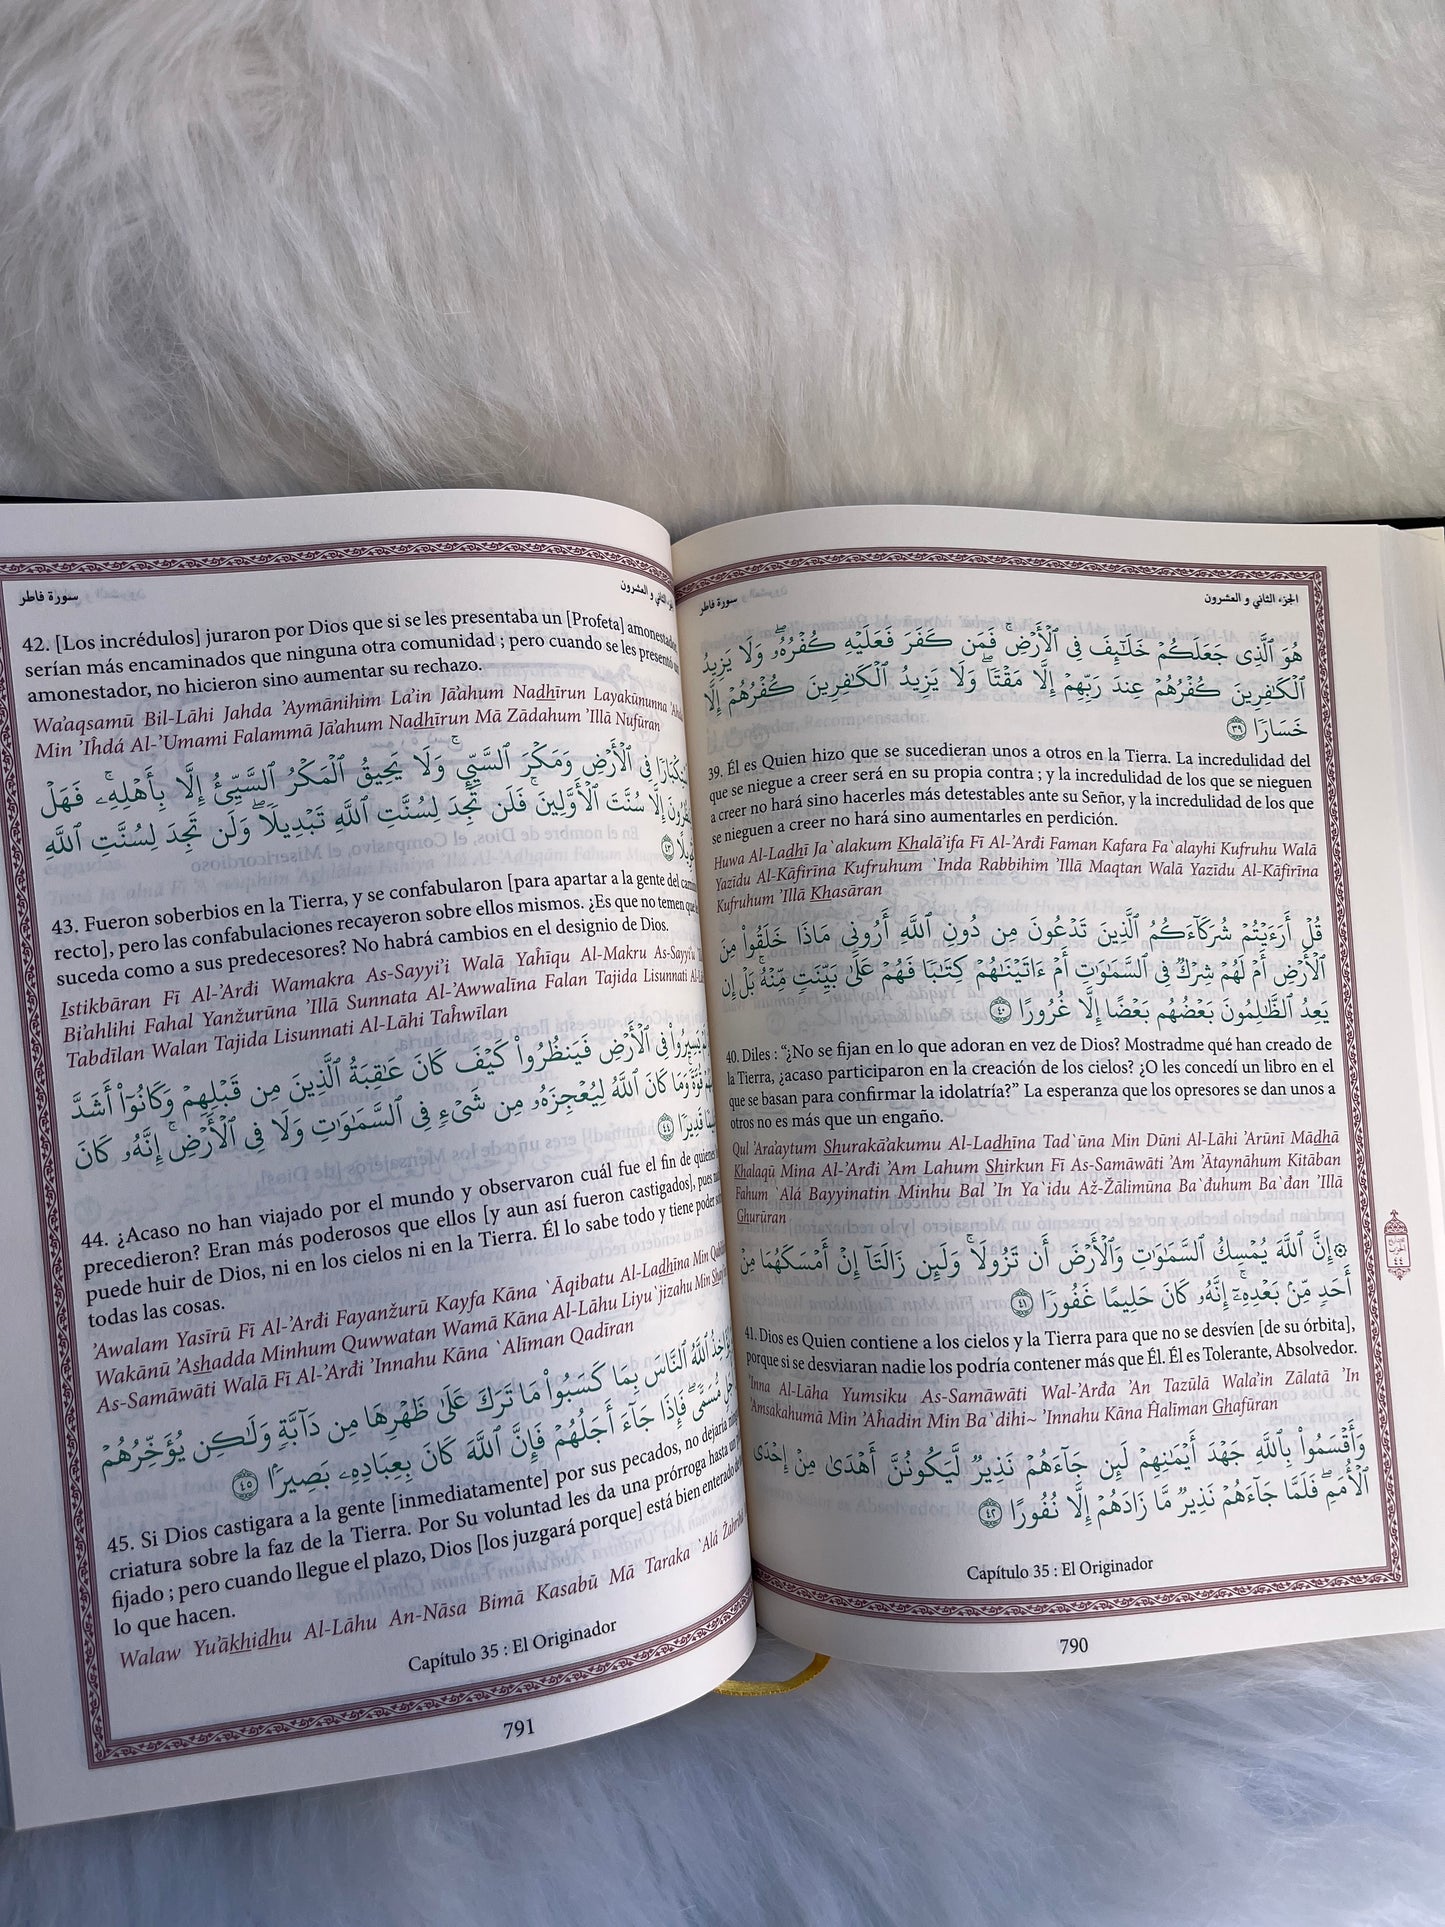 سورة فاطر الجزء الثاني و العشرون
هُوَ ٱلَّذِى جَعَلَكُمْ خَلَٰٓئِفَ فِى ٱلْأَرْضِ ۚ فَمَن كَفَرَ فَعَلَيْهِ كُفْرُهُۥ ۖ وَلَا يَزِيدُ
ٱلْكَٰفِرِينَ كُفْرُهُمْ عِندَ رَبِّهِمْ إِلَّا مَقْتًا ۖ وَلَا يَزِيدُ ٱلْكَٰفِرِينَ كُفْرُهُمْ إِلَّا
خَسَارًا ٣٩
39. Él es Quien hizo que se sucedieran unos a otros en la Tierra. La incredulidad del
que se niegue a creer será en su propia contra ; y la incredulidad de los que se nieguen
a creer no hará sino hacerles más detestables ante su Señor, y la incredulidad de los que
se nieguen a creer no hará sino aumentarles en perdición.
Huwa Al-Ladhī Ja`alakum Khalā'ifa Fī Al-'Arđi Faman Kafara Fa`alayhi Kufruhu Walā
Yazīdu Al-Kāfirīna Kufruhum `Inda Rabbihim 'Illā Maqtan Walā Yazīdu Al-Kāfirīna
Kufruhum 'Illā Khasāran
قُلْ أَرَءَيْتُمْ شُرَكَآءَكُمُ ٱلَّذِينَ تَدْعُونَ مِن دُونِ ٱللَّهِ أَرُونِى مَاذَا خَلَقُوا۟ مِنَ
ٱلْأَرْضِ أَمْ لَهُمْ شِرْكٌ فِى ٱلسَّمَٰوَٰتِ أَمْ ءَاتَيْنَٰهُمْ كِتَٰبًا فَهُمْ عَلَىٰ بَيِّنَتٍ مِّنْهُ ۚ بَلْ إِن
يَعِدُ ٱلظَّٰلِمُونَ بَعْضُهُم بَعْضًا إِلَّا غُرُورًا ٤٠
40. Diles : “¿No se fijan en lo que adoran en vez de Dios? Mostradme qué han creado de
la Tierra, ¿acaso participaron en la creación de los cielos? ¿O les concedí un libro en el
que se basan para confirmar la idolatría?” La esperanza que los opresores se dan unos a
otros no es más que un engaño.
Qul 'Ara'aytum Shurakā'akumu Al-Ladhīna Tad`ūna Min Dūni Al-Lāhi 'Arūnī Mādhā
Khalaqū Mina Al-'Arđi 'Am Lahum Shirkun Fī As-Samāwāti 'Am 'Ātaynāhum Kitāban
Fahum `Alá Bayyinatin Minhu Bal 'In Ya`idu Až-Žālimūna Ba`đuhum Ba`đan 'Illā
Ghurūran
۞ إِنَّ ٱللَّهَ يُمْسِكُ ٱلسَّمَٰوَٰتِ وَٱلْأَرْضَ أَن تَزُولَا ۚ وَلَئِن زَالَتَآ إِنْ أَمْسَكَهُمَا مِنْ
أَحَدٍ مِّنۢ بَعْدِهِۦٓ ۚ إِنَّهُۥ كَانَ حَلِيمًا غَفُورًا ٤١
41. Dios es Quien contiene a los cielos y la Tierra para que no se desvíen [de su órbita],
porque si se desviaran nadie los podría contener más que Él. Él es Tolerante, Absolvedor.
'Inna Al-Lāha Yumsiku As-Samāwāti Wal-'Arđa 'An Tazūlā Wala'in Zālatā 'In
'Amsakahumā Min 'Aĥadin Min Ba`dihi~ 'Innahu Kāna Ĥalīman Ghafūran
وَأَقْسَمُوا۟ بِٱللَّهِ جَهْدَ أَيْمَٰنِهِمْ لَئِن جَآءَهُمْ نَذِيرٌ لَّيَكُونُنَّ أَهْدَىٰ مِنْ إِحْدَى
ٱلْأُمَمِ ۖ فَلَمَّا جَآءَهُمْ نَذِيرٌ مَّا زَادَهُمْ إِلَّا نُفُورًا ٤٢
Capítulo 35 : El Originador
790
سورة فاطر الثاني و العشرون
42. [Los incrédulos] juraron por Dios que si se les presentaba un [Profeta]
serían más encaminados que ninguna otra comunidad ; pero cuando se les presentó
amonestador, no hicieron sino aumentar su rechazo.
Wa'aqsamū Bil-Lāhi Jahda 'Aymānihim La'in Jā'ahum Nadhīrun Layakūnunna
Min 'Iĥdá Al-'Umami Falammā Jā'ahum Nadhīrun Mā Zādahum 'Illā Nufūran
فِى ٱلْأَرْضِ وَمَكْرَ ٱلسَّيِّئِ ۚ وَلَا يَحِيقُ ٱلْمَكْرُ ٱلسَّيِّئُ إِلَّا بِأَهْلِهِۦ ۚ فَهَلْ
إِلَّا سُنَّتَ ٱلْأَوَّلِينَ ۚ فَلَن تَجِدَ لِسُنَّتِ ٱللَّهِ تَبْدِيلًا ۖ وَلَن تَجِدَ لِسُنَّتِ ٱللَّهِ
٤٣
43. Fueron soberbios en la Tierra, y se confabularon [para apartar a la gente del
recto], pero las confabulaciones recayeron sobre ellos mismos. ¿Es que no temen que
suceda como a sus predecesores? No habrá cambios en el designio de Dios.
Istikbāran Fī Al-'Arđi Wamakra As-Sayyi'i Walā Yaĥīqu Al-Makru As-Sayyi'u
Bi'ahlihi Fahal Yanžurūna 'Illā Sunnata Al-'Awwalīna Falan Tajida Lisunnati
Tabdīlan Walan Tajida Lisunnati Al-Lāhi Taĥwīlan
يَسِيرُوا۟ فِى ٱلْأَرْضِ فَيَنظُرُوا۟ كَيْفَ كَانَ عَٰقِبَةُ ٱلَّذِينَ مِن قَبْلِهِمْ وَكَانُوٓا۟ أَشَدَّ
قُوَّةً ۚ وَمَا كَانَ ٱللَّهُ لِيُعْجِزَهُۥ مِن شَىْءٍ فِى ٱلسَّمَٰوَٰتِ وَلَا فِى ٱلْأَرْضِ ۚ إِنَّهُۥ كَانَ
قَدِيرًا ٤٤
44. ¿Acaso no han viajado por el mundo y observaron cuál fue el fin de quienes
precedieron? Eran más poderosos que ellos [y aun así fueron castigados], pues
puede huir de Dios, ni en los cielos ni en la Tierra. Él lo sabe todo y tiene poder
todas las cosas.
'Awalam Yasīrū Fī Al-'Arđi Fayanžurū Kayfa Kāna `Āqibatu Al-Ladhīna Min
Wakānū 'Ashadda Minhum Quwwatan Wamā Kāna Al-Lāhu Liyu`jizahu Min
As-Samāwāti Walā Fī Al-'Arđi 'Innahu Kāna `Alīman Qadīran
ٱللَّهُ ٱلنَّاسَ بِمَا كَسَبُوا۟ مَا تَرَكَ عَلَىٰ ظَهْرِهَا مِن دَآبَّةٍ وَلَٰكِن يُؤَخِّرُهُمْ
مُّسَمًّى ۖ فَإِذَا جَآءَ أَجَلُهُمْ فَإِنَّ ٱللَّهَ كَانَ بِعِبَادِهِۦ بَصِيرًۢا ٤٥
45. Si Dios castigara a la gente [inmediatamente] por sus pecados, no dejaría
criatura sobre la faz de la Tierra. Por Su voluntad les da una prórroga hasta un
fijado ; pero cuando llegue el plazo, Dios [los juzgará porque] está bien enterado de
lo que hacen.
Walaw Yu'ākhidhu Al-Lāhu An-Nāsa Bimā Kasabū Mā Taraka `Alá
Capítulo 35 : El Originador
791